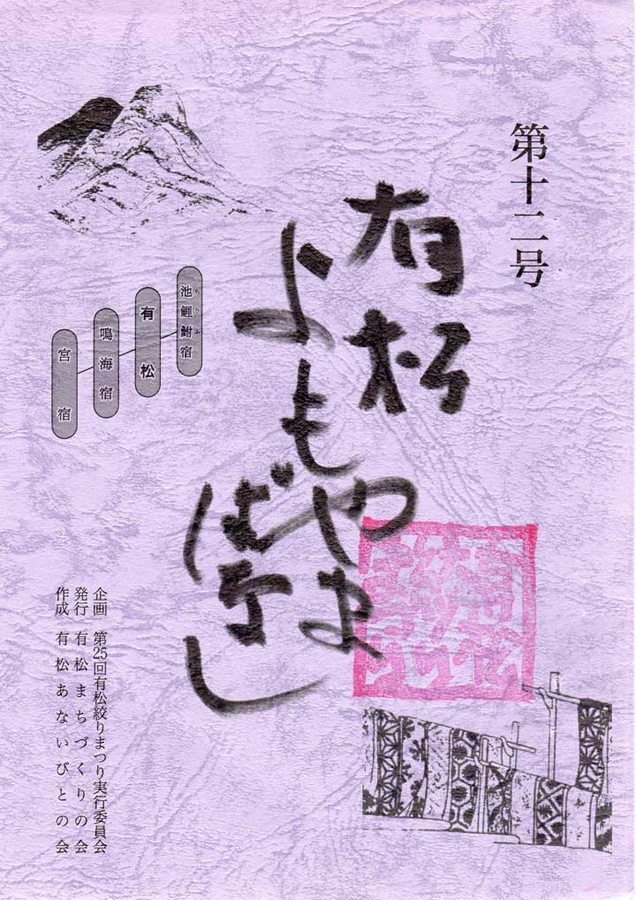 第十二号
有松
よもやま
ばなし
池鯉鮒宿
ちりふ
有松
鳴海宿
宮宿
企画 第25回有松絞りまつり実行委員会
発行 有松まちづくりの会
作成 有松あないびとの会